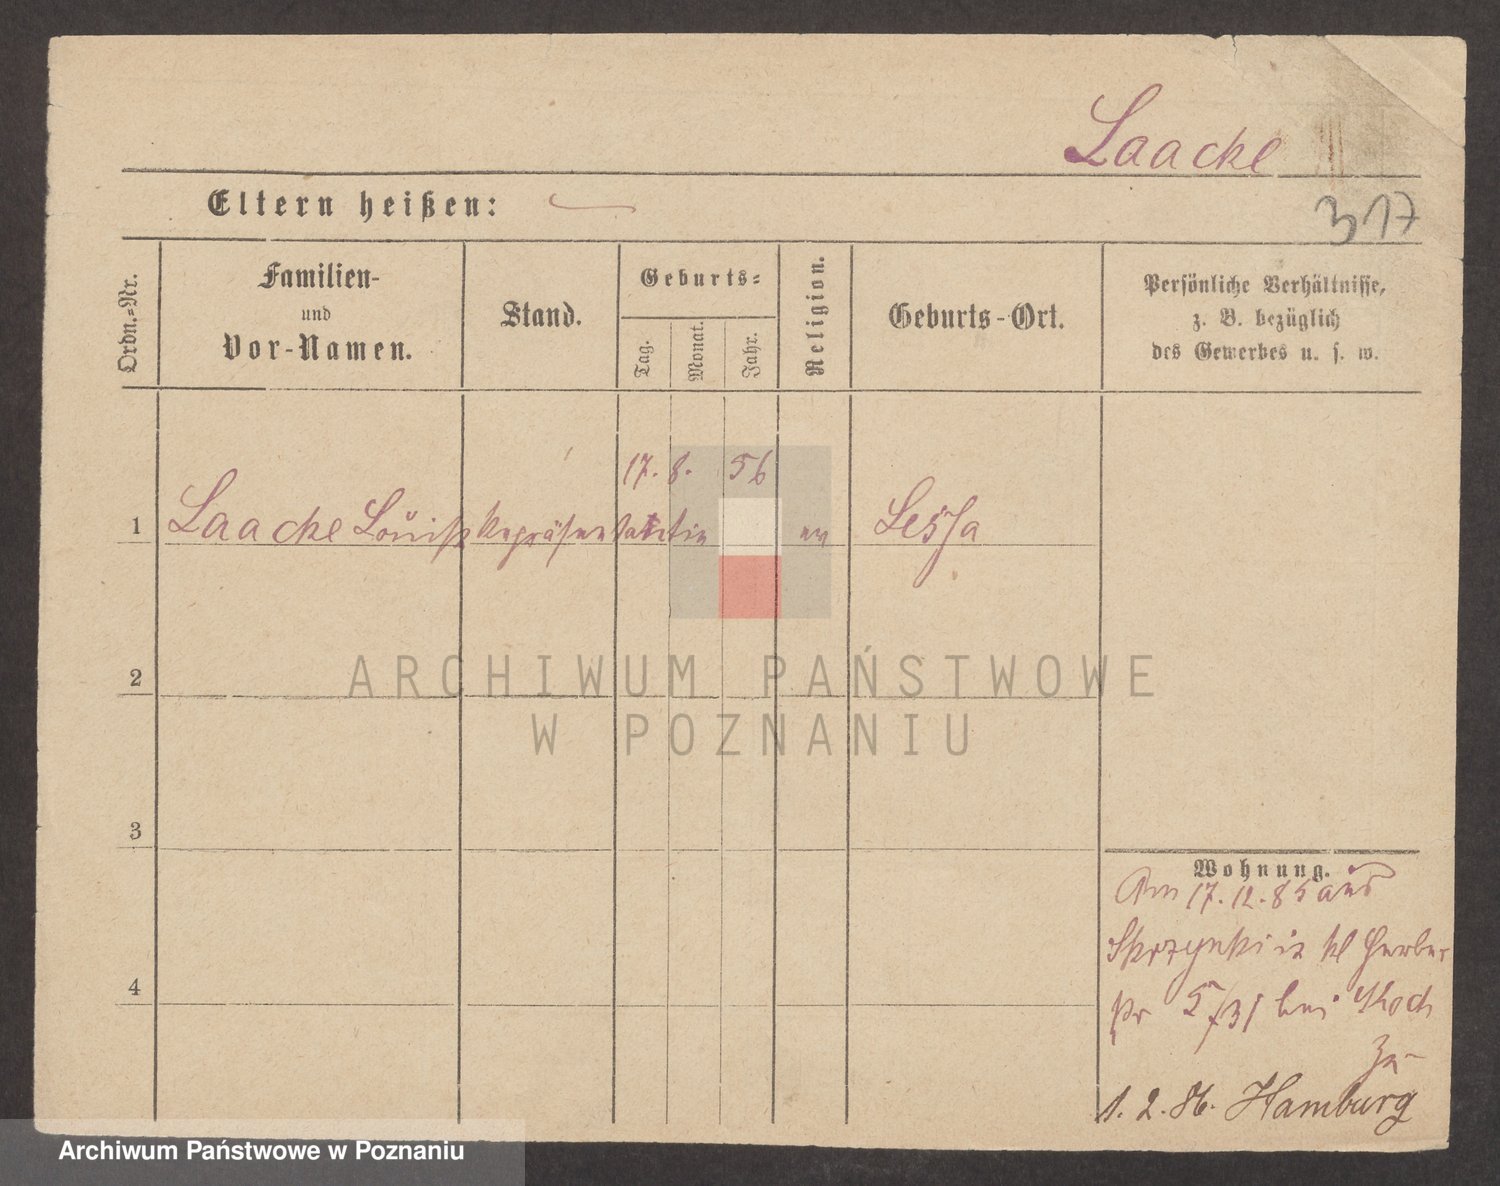 Laacke
Eltern heißen:
317
Ordn.=Nr.
Familien-
und
Vor-Namen.
Stand.
Geburts=
Tag.
Monat.
Jahr.
Religion.
Geburts-Ort.
Persönliche Verhältnisse,
z. B. bezüglich
des Gewerbes u. s. w.
17. 8. 56
1 Laacke Louise Repräsentantin ev
2
3
4
Wohnung.
Am 17.12.85 aus
Skrzynki in kl Gerber
str 5/31 bei Koch
zu
1. 2. 86. Hamburg
ARCHIWUM PAŃSTWOWE
W POZNANIU
Archiwum Państwowe w Poznaniu